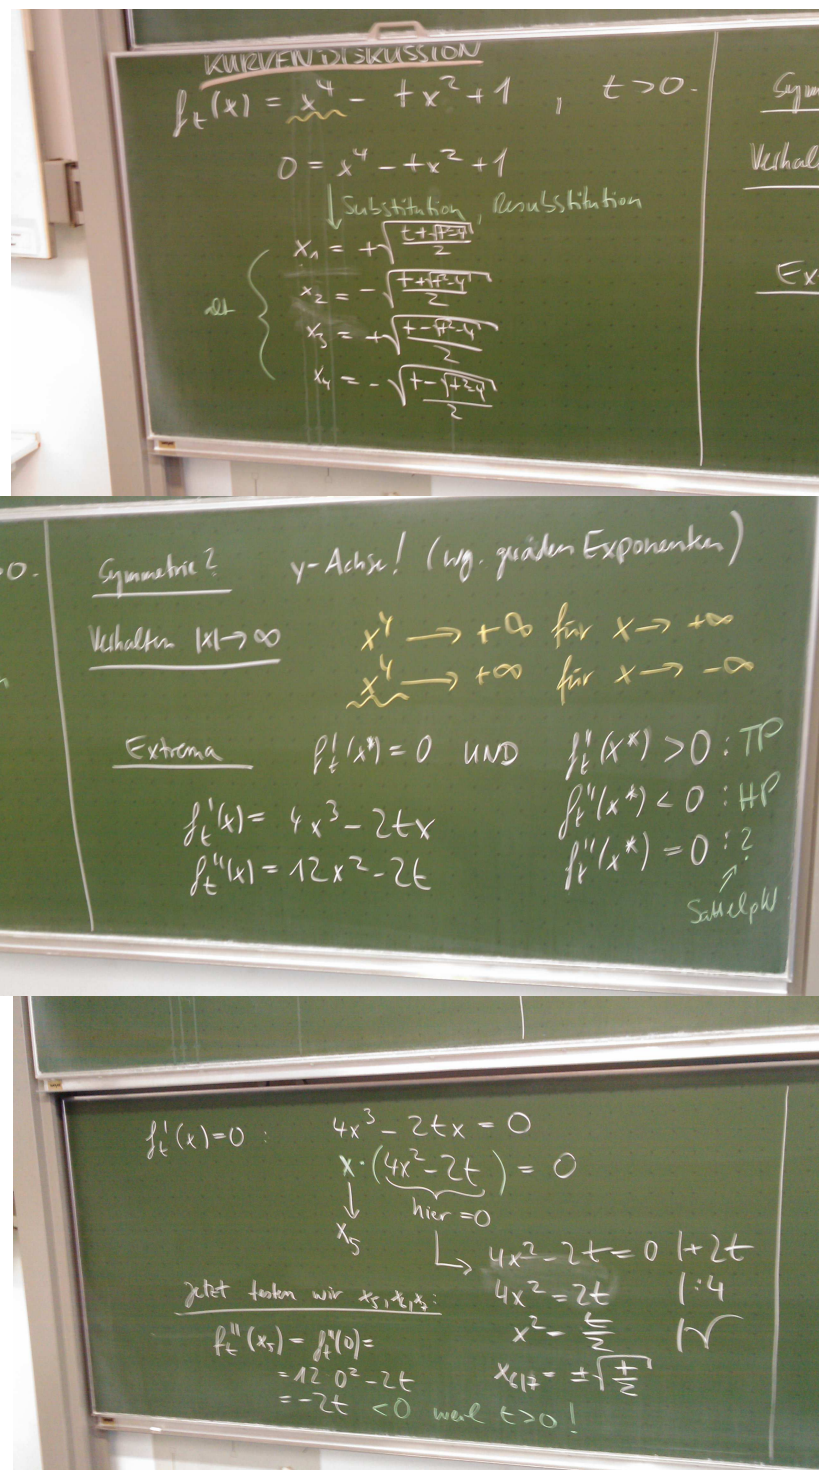 KURVENDISKUSSION
fₜ(x) = x⁴ - tx² + 1 , t > 0.
0 = x⁴ - tx² + 1
↓ Substitution, Resubstitution
x₁ = +√((t+√(t²-4))/2)
x₂ = -√((t+√(t²-4))/2)
alt
x₃ = +√((t-√(t²-4))/2)
x₄ = -√((t-√(t²-4))/2)
Sym
Verhal
Ex
0.
Symmetrie? y-Achse! (wg. geraden Exponenten)
Verhalten |x| → ∞
x⁴ → +∞ für x → +∞
x⁴ → +∞ für x → -∞
Extrema fₜ'(x*) = 0 UND fₜ''(x*) > 0 : TP
fₜ''(x*) < 0 : HP
fₜ'(x) = 4x³ - 2tx
fₜ''(x*) = 0 : ?
fₜ''(x) = 12x² - 2t
Sattelpkt
fₜ'(x) = 0 : 4x³ - 2tx = 0
x · (4x² - 2t) = 0
↓ hier = 0
x₅
↳ 4x² - 2t = 0 |+2t
Jetzt testen wir x₅, x₆, x₇:
4x² = 2t |:4
x² = t/2 |√
fₜ''(x₅) = fₜ''(0) =
x₆/₇ = ±√(t/2)
= 12 · 0² - 2t
= -2t < 0 weil t > 0 !